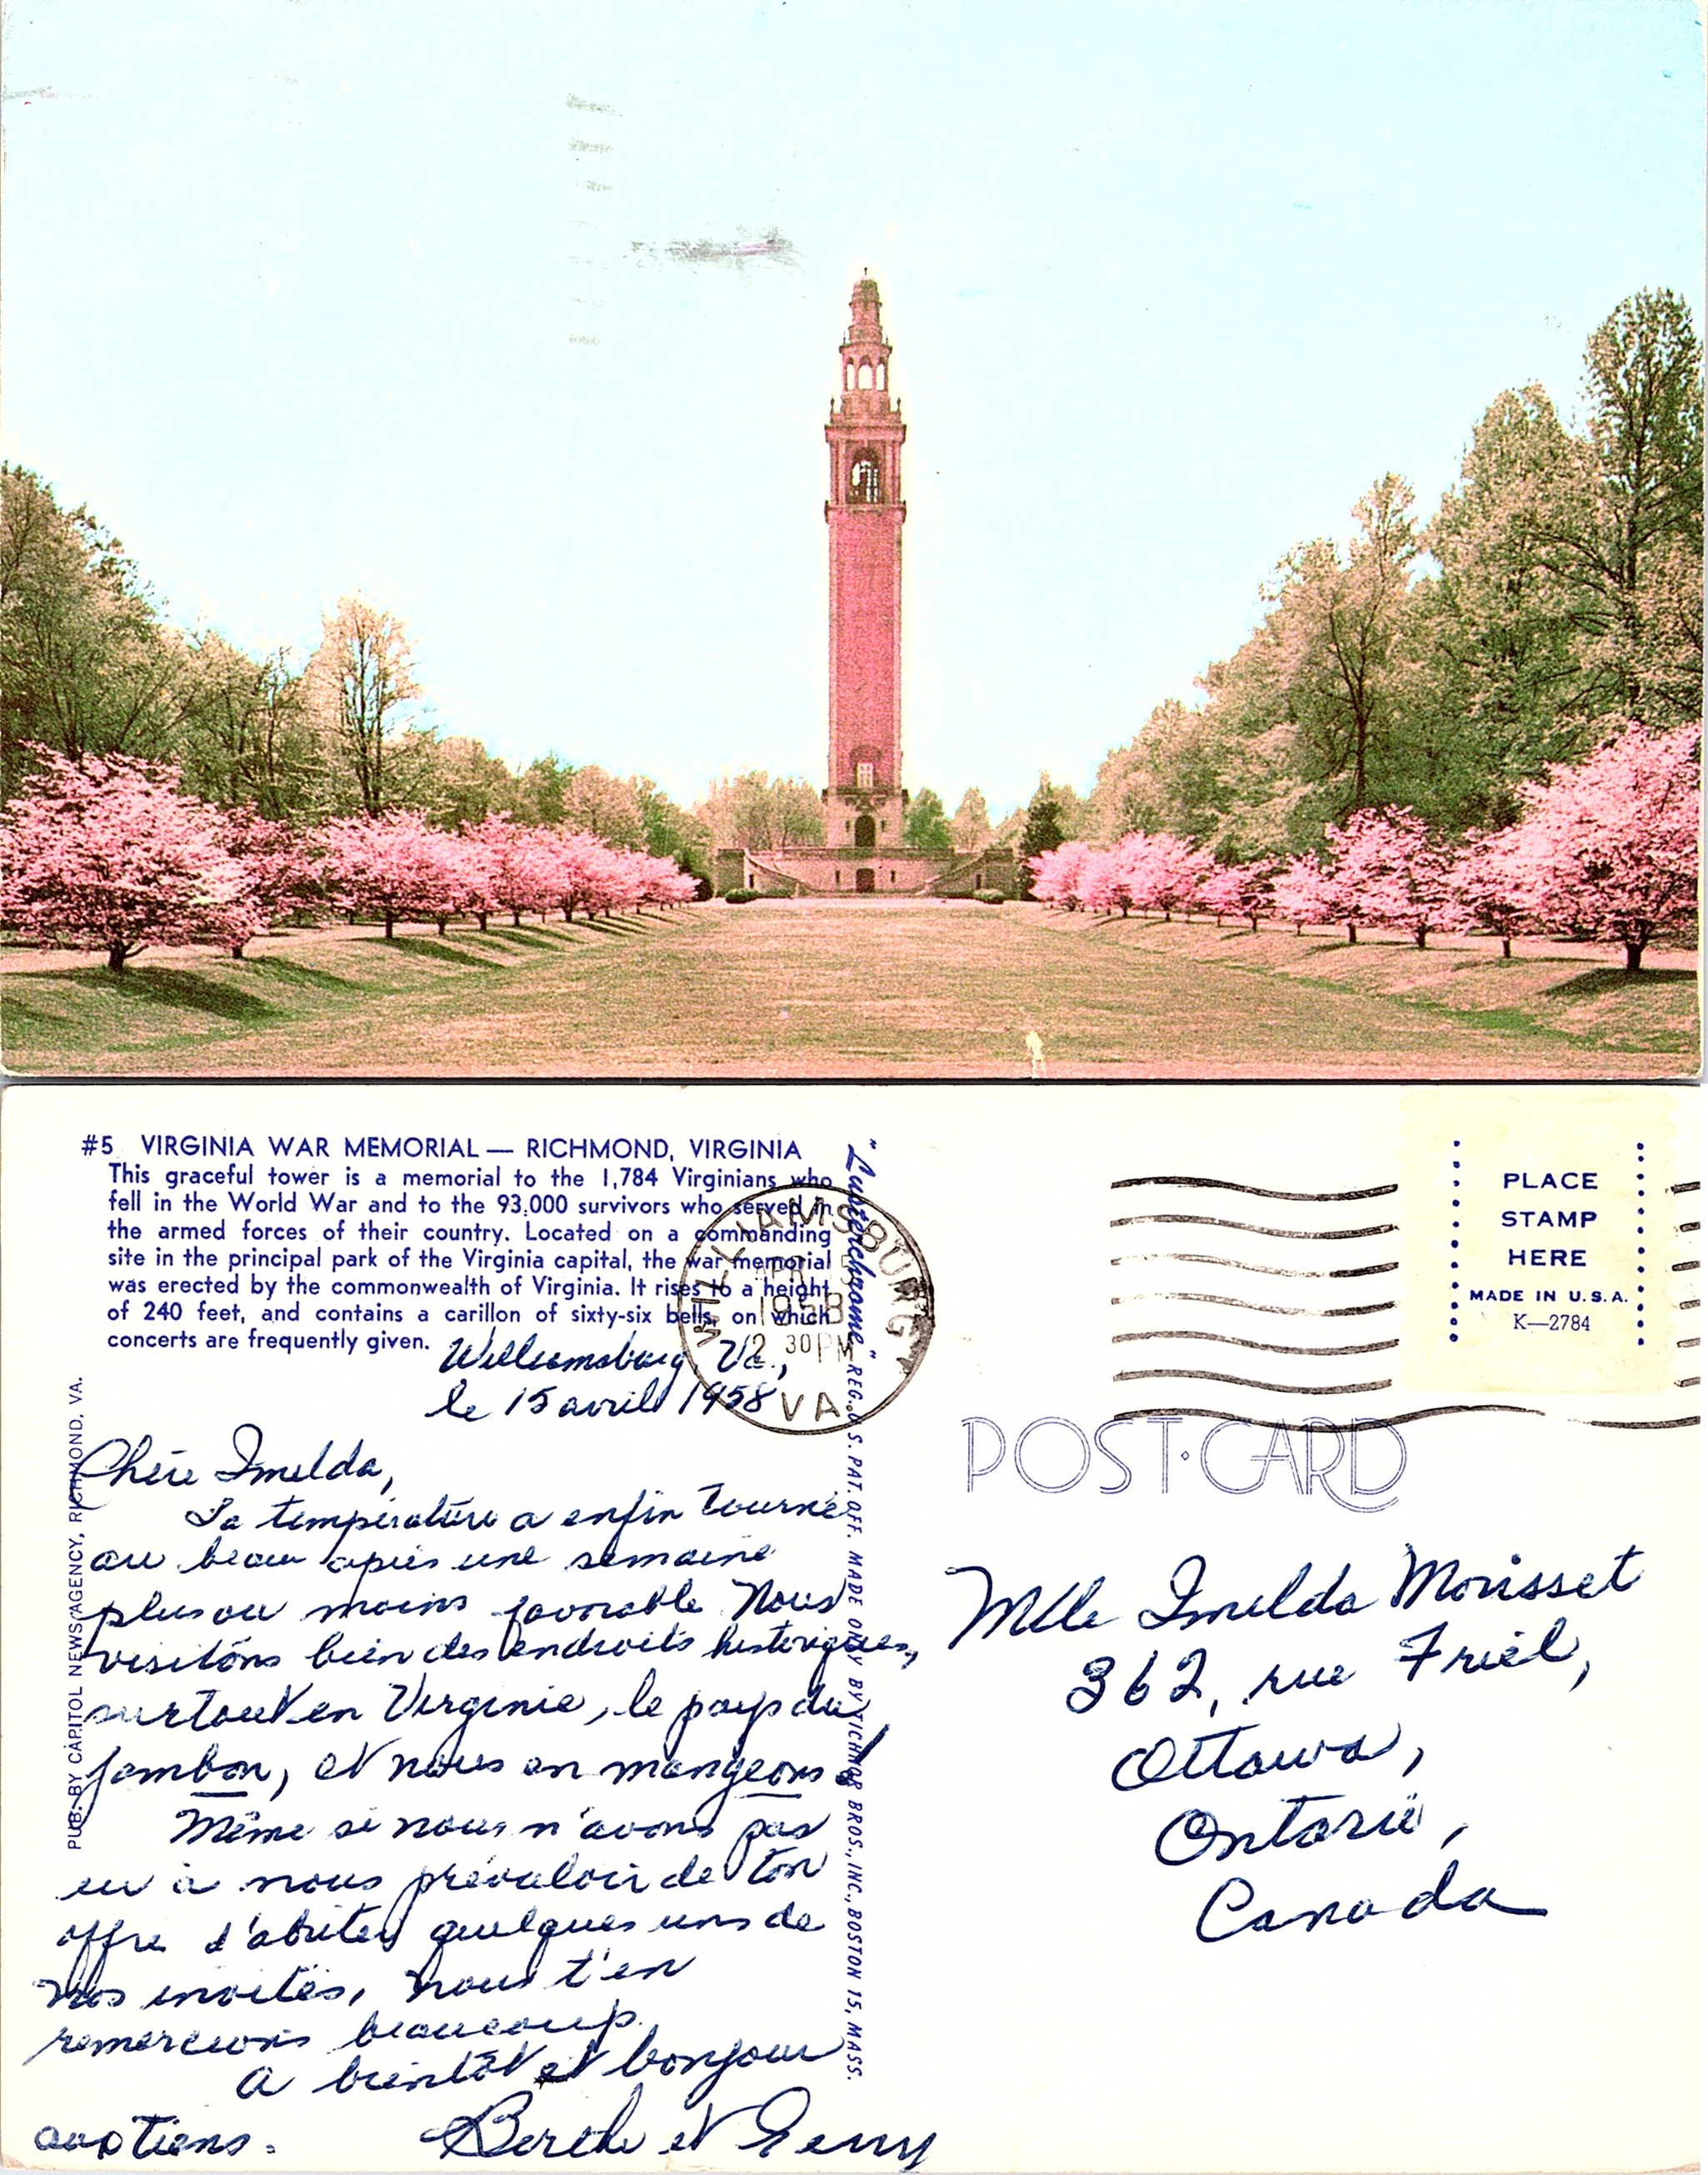 #5 VIRGINIA WAR MEMORIAL — RICHMOND, VIRGINIA
This graceful tower is a memorial to the 1,784 Virginians who
fell in the World War and to the 93,000 survivors who served in
the armed forces of their country. Located on a commanding
site in the principal park of the Virginia capital, the war memorial
was erected by the commonwealth of Virginia. It rises to a height
of 240 feet, and contains a carillon of sixty-six bells, on which
concerts are frequently given.
Williamsburg, Va.,
le 15 avril 1958
Chère Imelda,
La température a enfin tourné
au beau après une semaine
plus ou moins favorable. Nous
visitons bien des endroits historiques,
surtout en Virginie, le pays du
jambon, et nous en mangeons!
Même si nous n'avons pas
eu à nous prévaloir de ton
offre d'abriter quelques uns de
nos invités, nous t'en
remercions beaucoup.
A bientôt et bonjour
aux tiens.
Berthe et Gerry
PUB. BY CAPITOL NEWS AGENCY, RICHMOND, VA.
"Lusterchrome" REG. U.S. PAT. OFF. MADE ONLY BY TICHNOR BROS., INC., BOSTON 15, MASS.
WILLIAMSBURG
APR 15
1958
2 30 PM
VA
PLACE
STAMP
HERE
MADE IN U.S.A.
K—2784
POST·CARD
Mlle Imelda Morisset
362, rue Friel,
Ottawa,
Ontario,
Canada